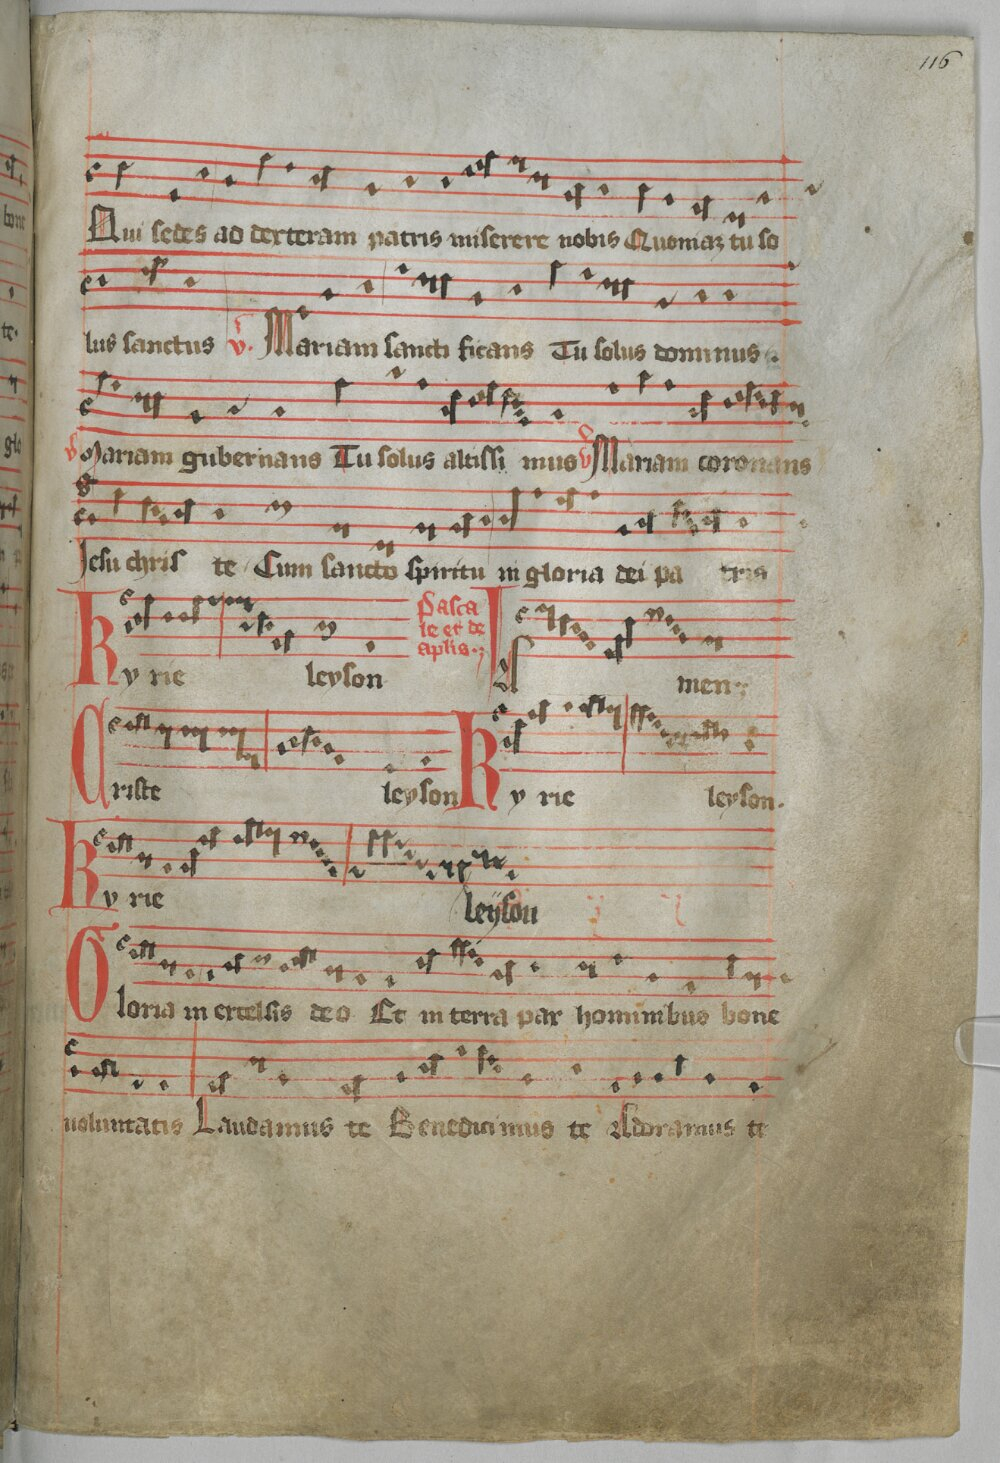 116
Qui sedes ad dexteram patris miserere nobis Quoniaz tu so
lus sanctus v. Mariam sancti ficans Tu solus dominus
v Mariam gubernans Tu solus altissi mus v Mariam coronans
Jesu chris te Cum sancto spiritu in gloria dei pa tris
Pasca
le et de
aplis
Ky rie leyson men
Criste leyson Ky rie leyson.
Ky rie leyson
Gloria in excelsis deo Et in terra pax hominibus bone
voluntatis Laudamus te Benedicimus te Adoramus te